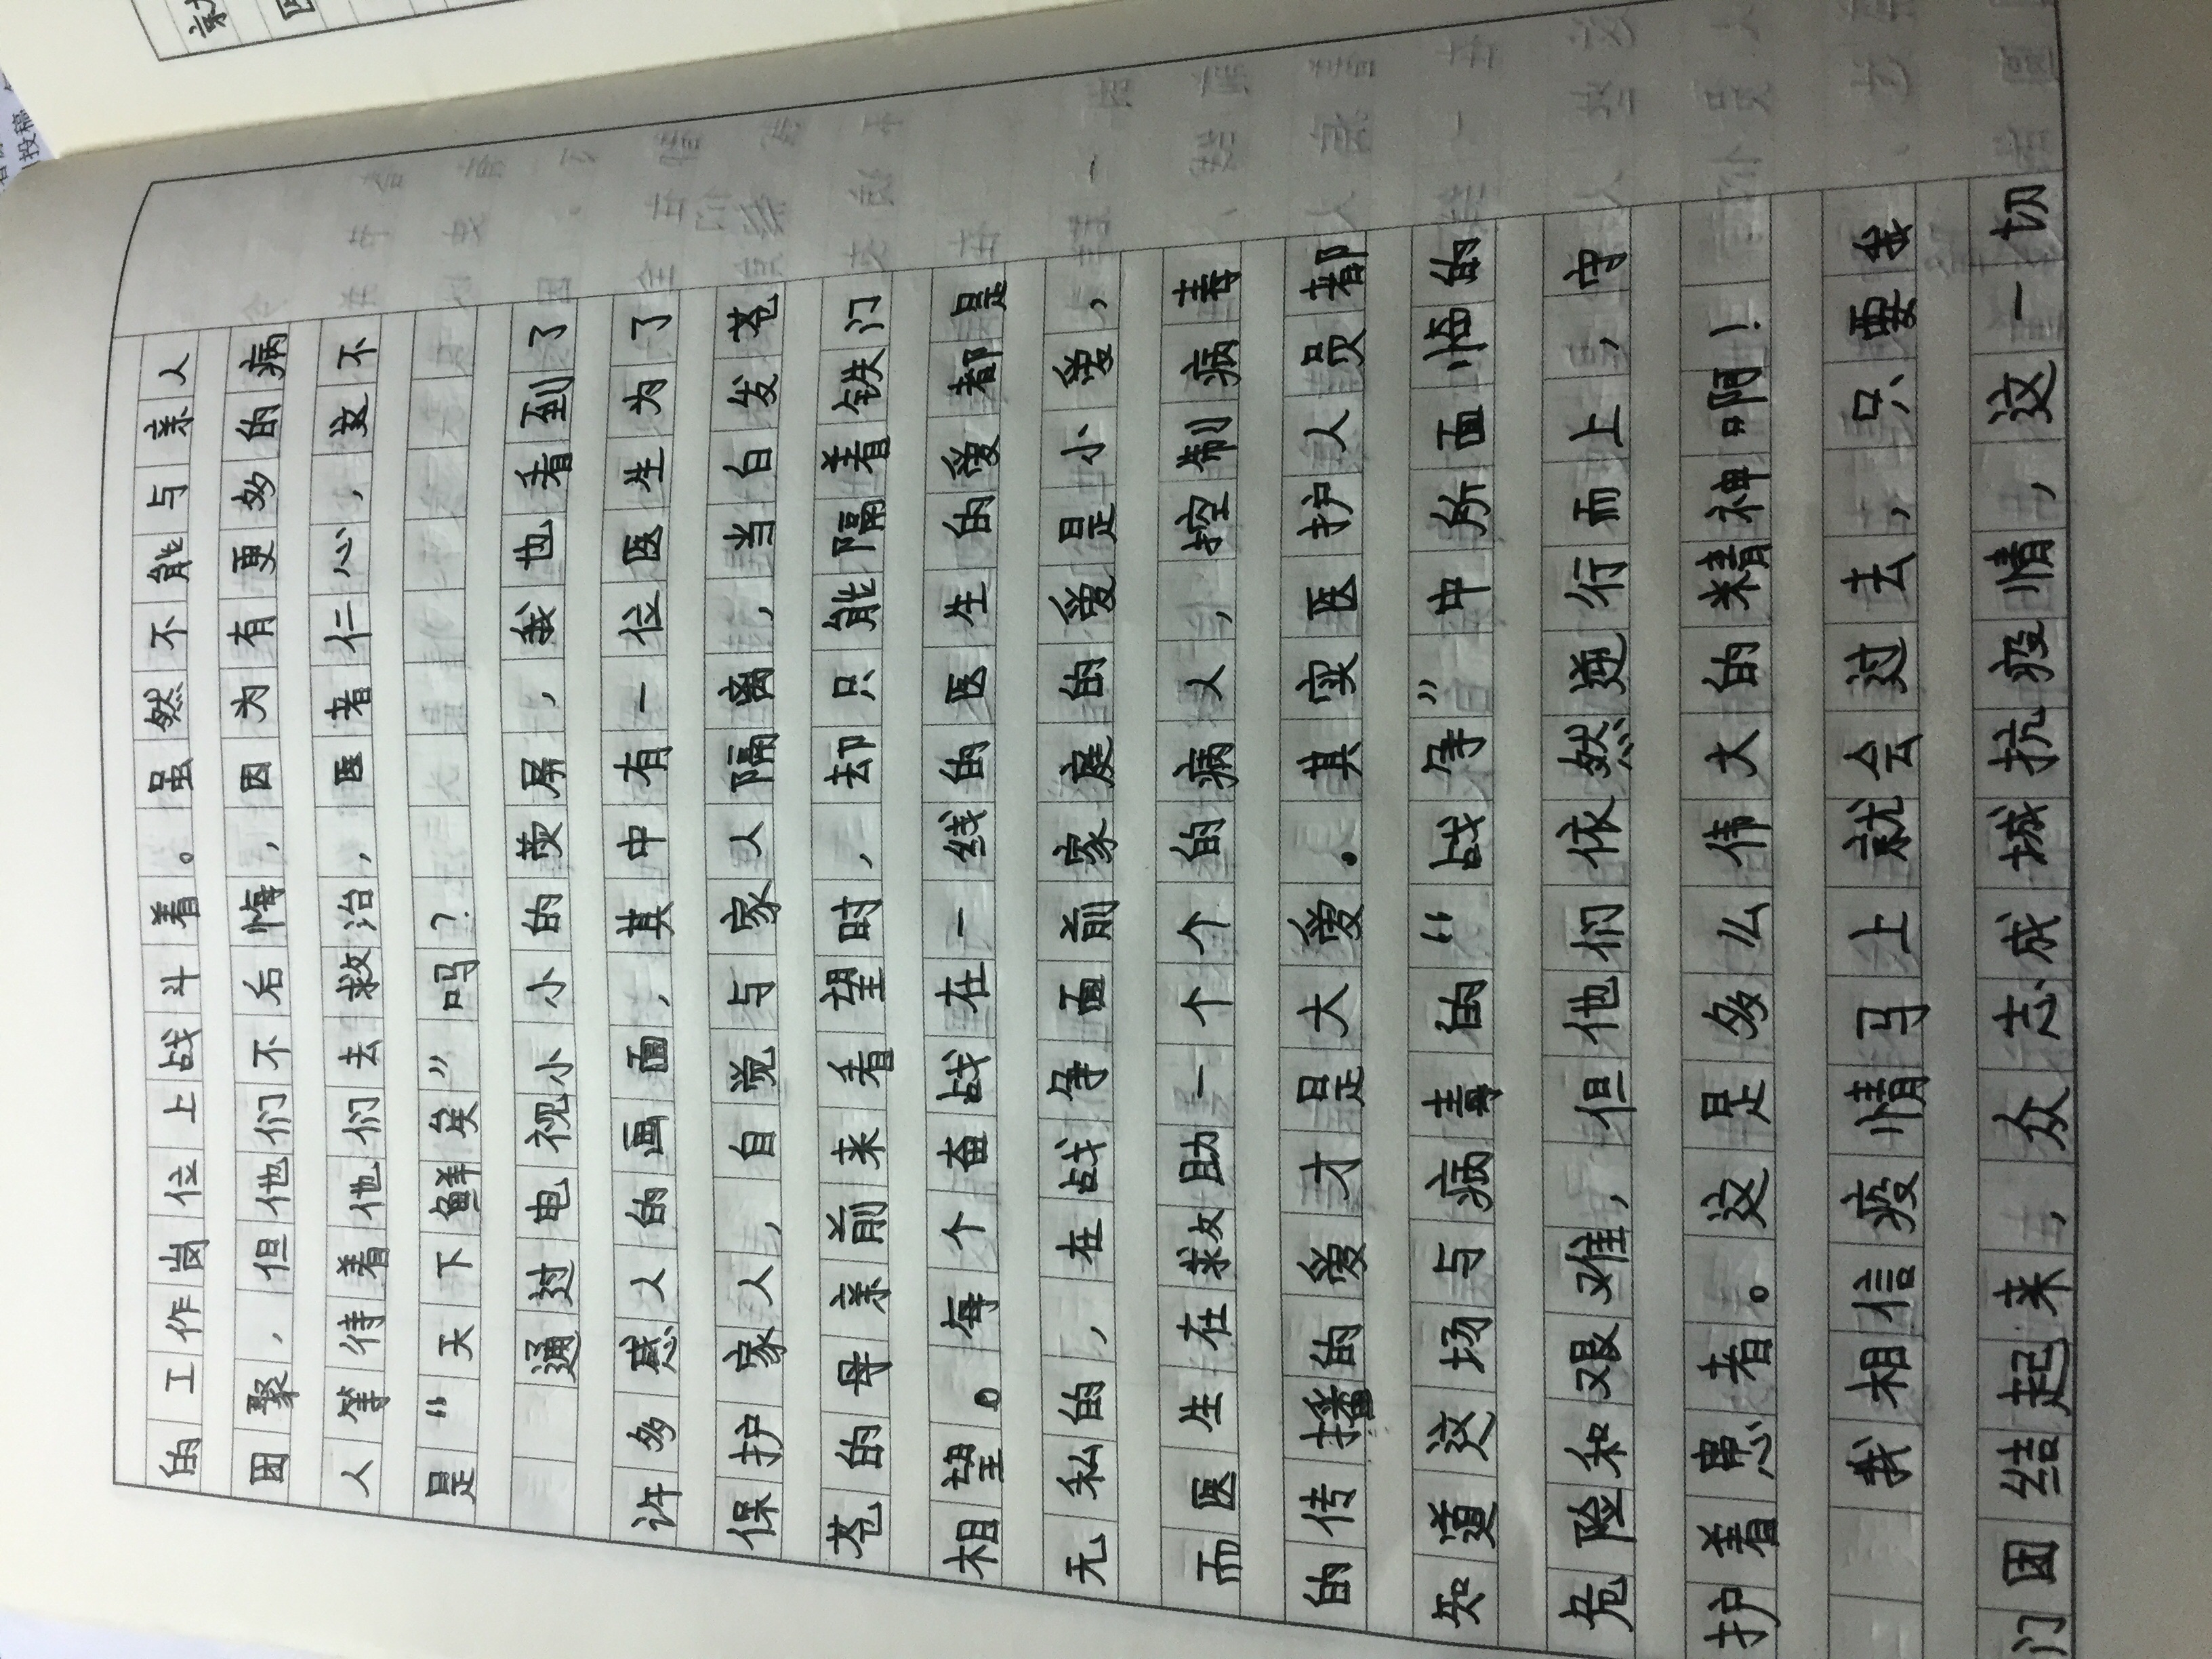 的工作岗位上战斗着。虽然不能与亲人
团聚，但他们不后悔，因为有更多的病
人等待着他们去救治，医者仁心，这不
是“天下鲜矣”吗？
通过电视小小的荧屏，我也看到了
许多感人的画面，其中有一位医生为了
保护家人，自觉与家人隔离，当白发苍
苍的母亲前来看望时，却只能隔着铁门
相望。每个奋战在一线的医生的爱都是
无私的，在战争面前家庭的爱是小爱，
而医生在救助一个个的病人，控制病毒
的传播的爱才是大爱。其实医护人员都
知道这场与病毒的“战争”中所面临的
危险和艰难，但他们依然逆行而上，守
护着患者。这是多么伟大的精神啊！
我相信疫情马上就会过去，只要我
们团结起来，众志成城抗疫情，这一切
投稿